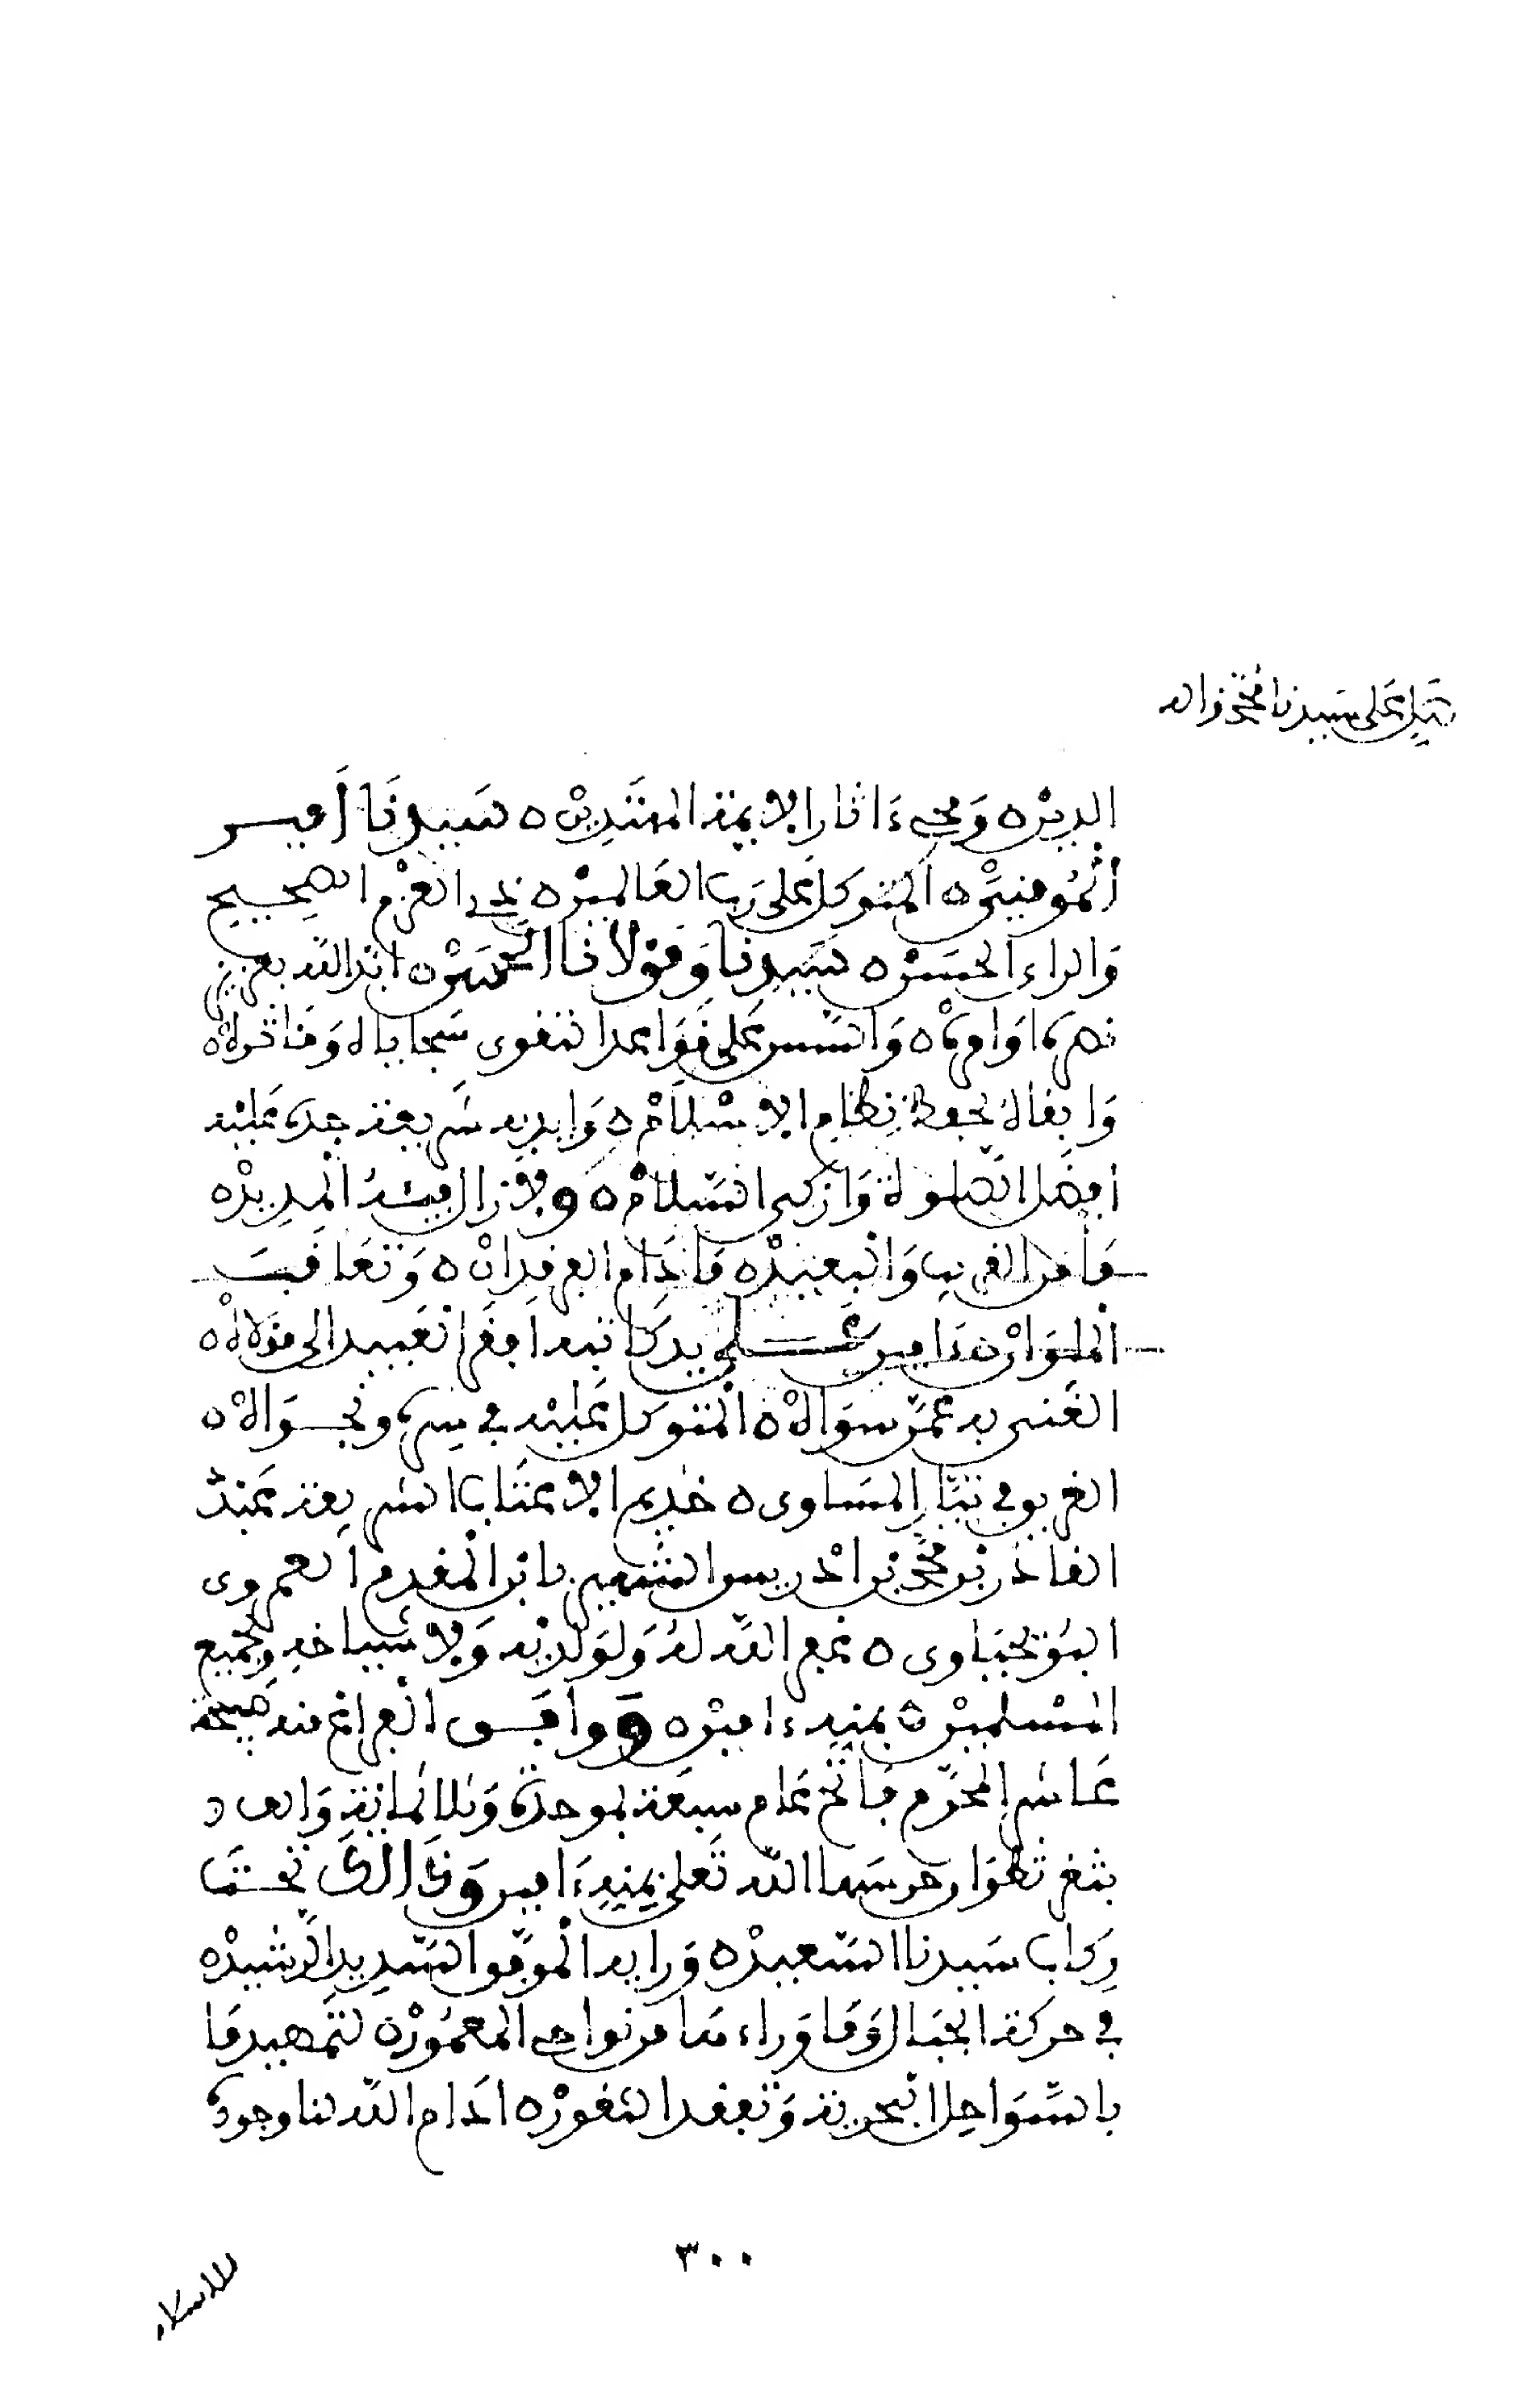 صل على سيدنا محمد واله
الدين ومحي ءاثار الايمة المهتدين سيدنا أمير
المومنين المتوكل على رب العالمين ذي العزم الصحيح
والراء الحسن سيدنا ومولانا الحسن ايد الله بعزيز
نصره اوامره واسس على قواعد التقوى سجاياه ومئاثره
وابقاه لحفظ نظام الاسلام وايد به شريعة جده عليه
افضل الصلوة وازكى السلام ولا زال فيئه المديد
مامن القريب والبعيد ما دام الفرقدان وتعاقب
الملوان ءامين على يد كاتبه افقر العبيد الى مولاه
الغني به عمن سواه المتوكل عليه في سره ونجواه
الغريق في تيار المساوى خديم الاعتاب الشريفة عبد
القادر بن محمد بن ادريس الشهير بابن المقدم العمروى
البويحياوى غفر الله له ولولديه ولاشياخه ولجميع
المسلمين بمنه ءامين ووافق الفراغ منه صبيحة
عاشر المحرم فاتح عام سبعة بموحدة وثلاثمائة والف
بثغر تطوان حرسها الله تعلى بمنه ءامين وذالك تحت
ركاب سيدنا السعيد ورايه الموفق السديد الرشيد
في حركة الجبال وما وراءها من نواحي المعمور لتمهيدها
بالسواحل البحرية وتفقد الثغور ادام الله لنا وجوده
٣٠٠
للاسلام